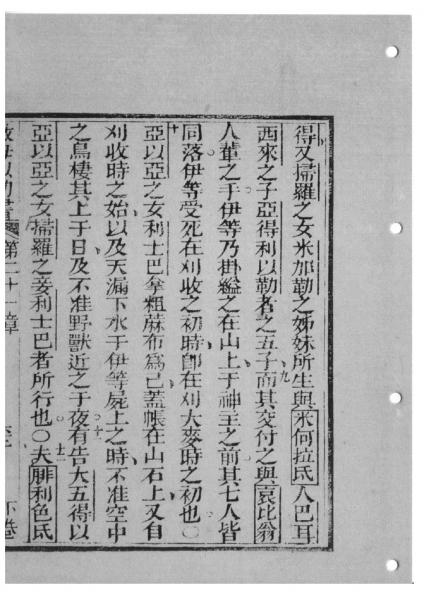 得又掃羅之女米加勒之姊妹所生與米何拉氐人巴耳
西來之子亞得利以勒者之五子而其交付之與袁比翁
九
人輩之手伊等乃掛縊之在山上于神主之前其七人皆
同落伊等受死在刈收之初時卽在刈大麥時之初也〇
十
亞以亞之女利士巴拿粗蔴布為己蓋帳在山石上又自
刈收時之始以及天漏下水于伊等屍上之時不准空中
之鳥棲其上于日及不准野獸近之于夜有告大五得以
十一
亞以亞之女掃羅之妾利士巴者所行也〇夫腓利色氐
十二
第二十一章